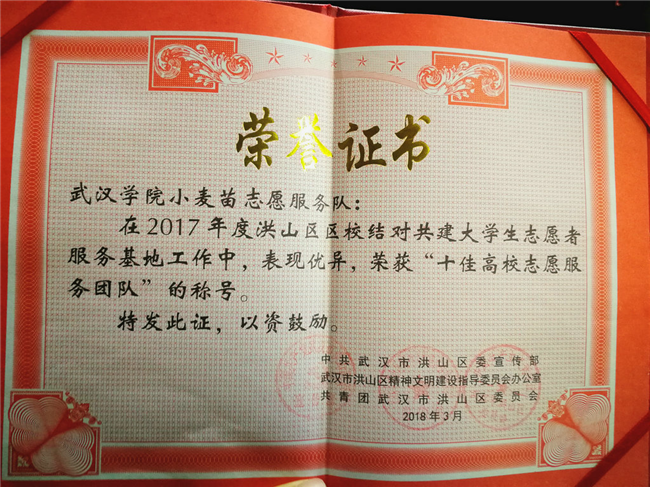 荣誉证书
武汉学院小麦苗志愿服务队：
在2017年度洪山区区校结对共建大学生志愿者
服务基地工作中，表现优异，荣获“十佳高校志愿服
务团队”的称号。
特发此证，以资鼓励。
中共武汉市洪山区委宣传部
武汉市洪山区精神文明建设指导委员会办公室
共青团武汉市洪山区委员会
2018年3月